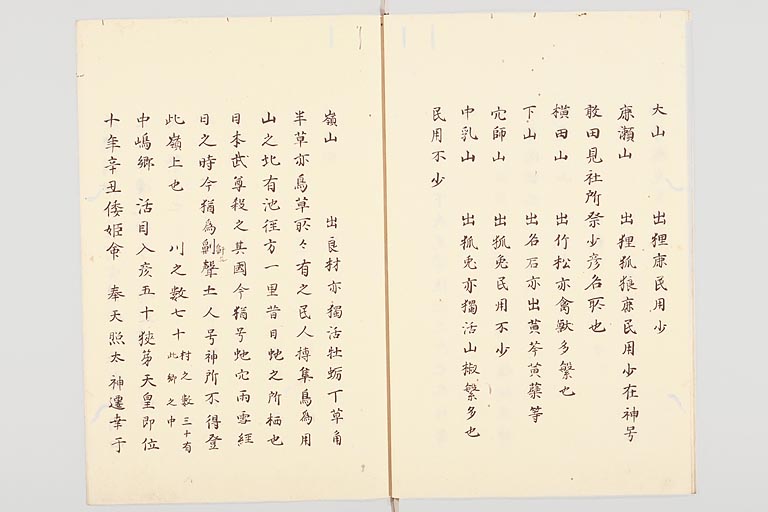 大山　出狸鹿民用少
鹿瀬山　出狸狐狼鹿民用少在神号
敢田見社所祭少彦名㱏也
横田山　出竹松亦禽獣多繁也
下山　出名石亦出黄芩黄蘗等
穴師山　出狐兎民用不少
中乳山　出狐兎亦獨活山椒繁多也
民用不少
嶺山　出良材亦獨活牡蛎丁草角
半草亦烏草㱏々有之民人摶集鳥為用
山之北有池徑方一里昔日虵之所栖也
日本武尊殺之其國今猶号虵穴雨雪経
日之時今猶為劇聲土人号神所不得登
此嶺上也　川之数七十 村之数三十有 此郷之中
中嶋郷　活目入彦五十狭茅天皇即位
十年辛丑倭姫命　奉天照太神遷幸于